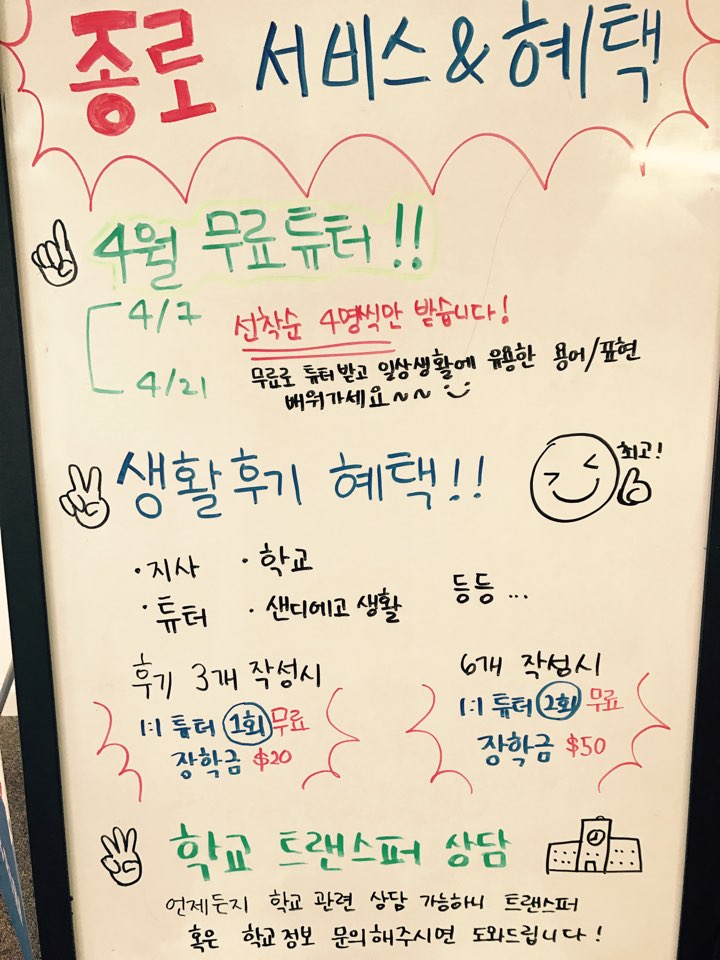 종로 서비스&혜택
4월 무료튜터!!
4/7
선착순 4명씩만 받습니다!
4/21
무료로 튜터받고 일상생활에 유용한 용어/표현
배워가세요~~
생활후기 혜택!!
최고!
·지사 ·학교
·튜터 ·샌디에고 생활
등등...
후기 3개 작성시
1:1 튜터 1회 무료
장학금 $20
6개 작성시
1:1 튜터 2회 무료
장학금 $50
학교 트랜스퍼 상담
언제든지 학교 관련 상담 가능하니 트랜스퍼
혹은 학교정보 문의해주시면 도와드립니다!